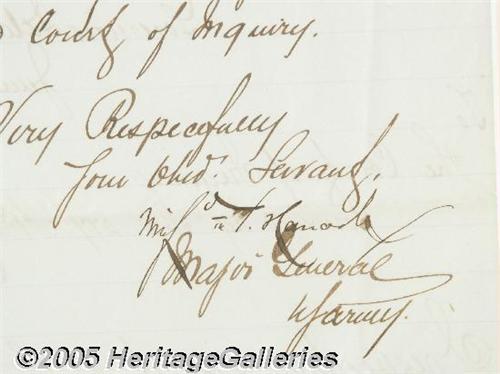 Court of Inquiry.
Very Respectfully
Your Obed. Servant,
Winf'd S. Hancock
Major General
U.S. Army.
©2005 HeritageGalleries